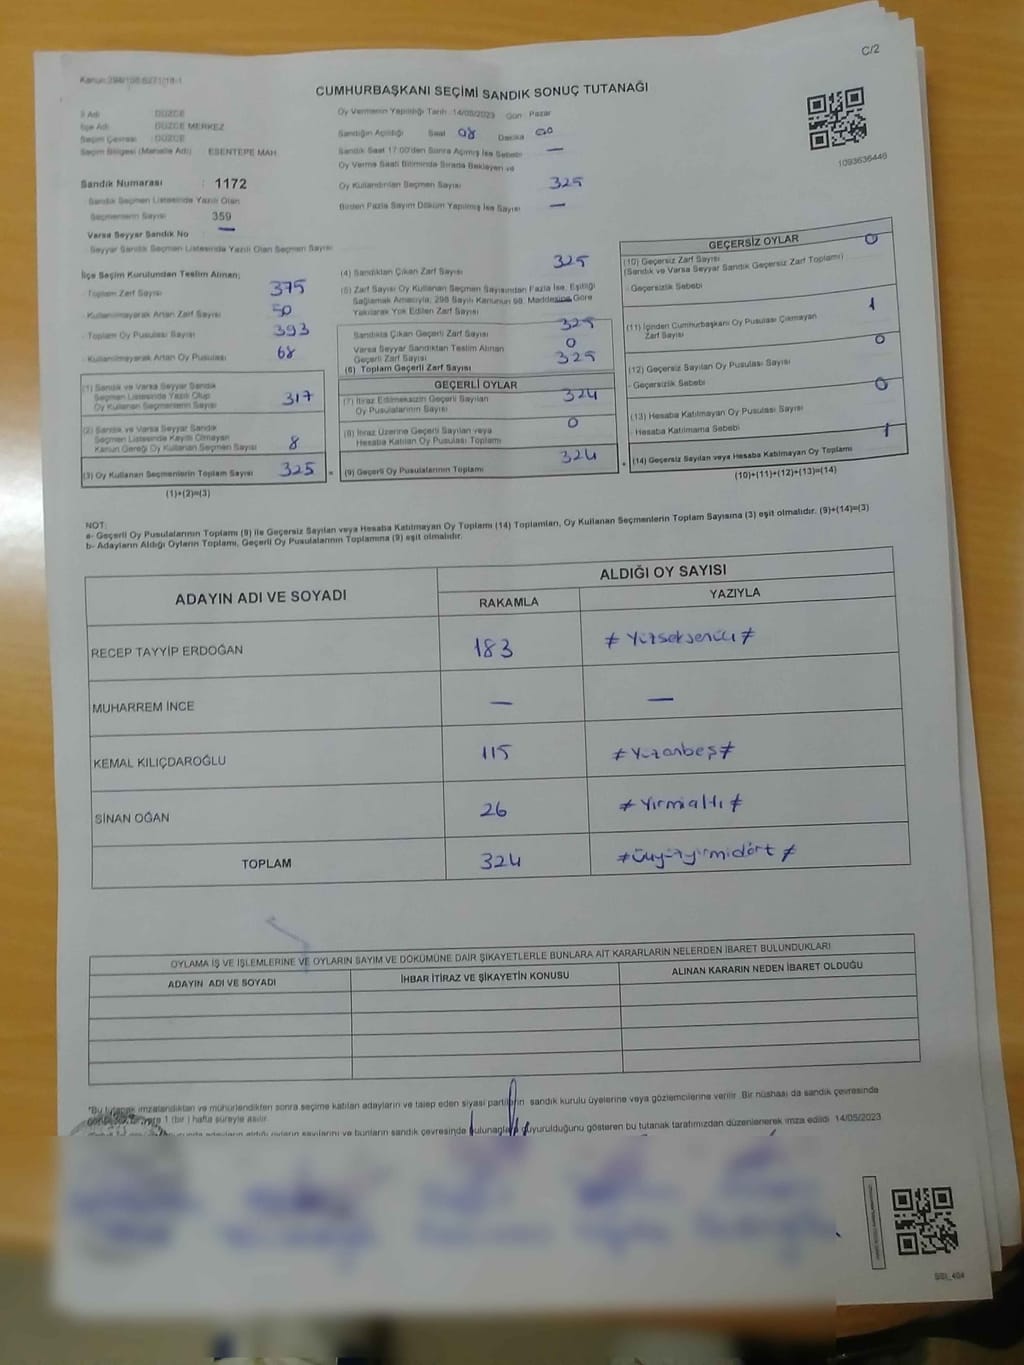 C/2
Kanun:298/108:6271/18-1
CUMHURBAŞKANI SEÇİMİ SANDIK SONUÇ TUTANAĞI
İl Adı : DÜZCE
İlçe Adı : DÜZCE MERKEZ
Seçim Çevresi : DÜZCE
Seçim Bölgesi (Mahalle Adı) ESENTEPE MAH
Sandık Numarası : 1172
Sandık Seçmen Listesinde Yazılı Olan
Seçmenlerin Sayısı 359
Varsa Seyyar Sandık No : —
Seyyar Sandık Seçmen Listesinde Yazılı Olan Seçmen Sayısı
Oy Vermenin Yapıldığı Tarih :14/05/2023 Gün Pazar
Sandığın Açıldığı Saat 08 Dakika 00
Sandık Saat 17:00'den Sonra Açılmış İse Sebebi —
Oy Verme Saati Bitiminde Sırada Bekleyen ve
Oy Kullandırılan Seçmen Sayısı 325
Birden Fazla Sayım Döküm Yapılmış İse Sayısı —
1093636446
İlçe Seçim Kurulundan Teslim Alınan;
- Toplam Zarf Sayısı 375
- Kullanılmayarak Artan Zarf Sayısı 50
- Toplam Oy Pusulası Sayısı 393
- Kullanılmayarak Artan Oy Pusulası 68
(1) Sandık ve Varsa Seyyar Sandık
Seçmen Listesinde Yazılı Olup
Oy Kullanan Seçmenlerin Sayısı 317
(2) Sandık ve Varsa Seyyar Sandık
Seçmen Listesinde Kayıtlı Olmayan
Kanun Gereği Oy Kullanan Seçmen Sayısı 8
(3) Oy Kullanan Seçmenlerin Toplam Sayısı 325 =
(1)+(2)=(3)
(4) Sandıktan Çıkan Zarf Sayısı 325
(5) Zarf Sayısı Oy Kullanan Seçmen Sayısından Fazla İse, Eşitliği
Sağlamak Amacıyla, 298 Sayılı Kanunun 98. Maddesine Göre
Yakılarak Yok Edilen Zarf Sayısı —
Sandıkta Çıkan Geçerli Zarf Sayısı 325
Varsa Seyyar Sandıktan Teslim Alınan
Geçerli Zarf Sayısı 0
(6) Toplam Geçerli Zarf Sayısı 325
GEÇERLİ OYLAR
(7) İtiraz Edilmeksizin Geçerli Sayılan
Oy Pusulalarının Sayısı 324
(8) İtiraz Üzerine Geçerli Sayılan veya
Hesaba Katılan Oy Pusulası Toplamı 0
(9) Geçerli Oy Pusulalarının Toplamı 324 +
GEÇERSİZ OYLAR
(10) Geçersiz Zarf Sayısı 0
(Sandık ve Varsa Seyyar Sandık Geçersiz Zarf Toplamı)
- Geçersizlik Sebebi
(11) İçinden Cumhurbaşkanı Oy Pusulası Çıkmayan 1
Zarf Sayısı
(12) Geçersiz Sayılan Oy Pusulası Sayısı 0
- Geçersizlik Sebebi
(13) Hesaba Katılmayan Oy Pusulası Sayısı 0
- Hesaba Katılmama Sebebi
(14) Geçersiz Sayılan veya Hesaba Katılmayan Oy Toplamı 1
(10)+(11)+(12)+(13)=(14)
NOT:
a- Geçerli Oy Pusulalarının Toplamı (9) ile Geçersiz Sayılan veya Hesaba Katılmayan Oy Toplamı (14) Toplamları, Oy Kullanan Seçmenlerin Toplam Sayısına (3) eşit olmalıdır. (9)+(14)=(3)
b- Adayların Aldığı Oyların Toplamı, Geçerli Oy Pusulalarının Toplamına (9) eşit olmalıdır.
ADAYIN ADI VE SOYADI ALDIĞI OY SAYISI
RAKAMLA YAZIYLA
RECEP TAYYİP ERDOĞAN 183 # Yüzseksenüç #
MUHARREM İNCE — —
KEMAL KILIÇDAROĞLU 115 # Yüzonbeş #
SİNAN OĞAN 26 # Yirmialtı #
TOPLAM 324 # Üçyüzyirmidört #
OYLAMA İŞ VE İŞLEMLERİNE VE OYLARIN SAYIM VE DÖKÜMÜNE DAİR ŞİKAYETLERLE BUNLARA AİT KARARLARIN NELERDEN İBARET BULUNDUKLARI
ADAYIN ADI VE SOYADI İHBAR İTİRAZ VE ŞİKAYETİN KONUSU ALINAN KARARIN NEDEN İBARET OLDUĞU
*Bu tutanak imzalandıktan ve mühürlendikten sonra seçime katılan adayların ve talep eden siyasi partilerin sandık kurulu üyelerine veya gözlemcilerine verilir. Bir nüshası da sandık çevresinde
1 (bir ) hafta süreyle asılır.
adayların aldığı oyların sayılarını ve bunların sandık çevresinde bulunanlara duyurulduğunu gösteren bu tutanak tarafımızdan düzenlenerek imza edildi. 14/05/2023
SSI_404